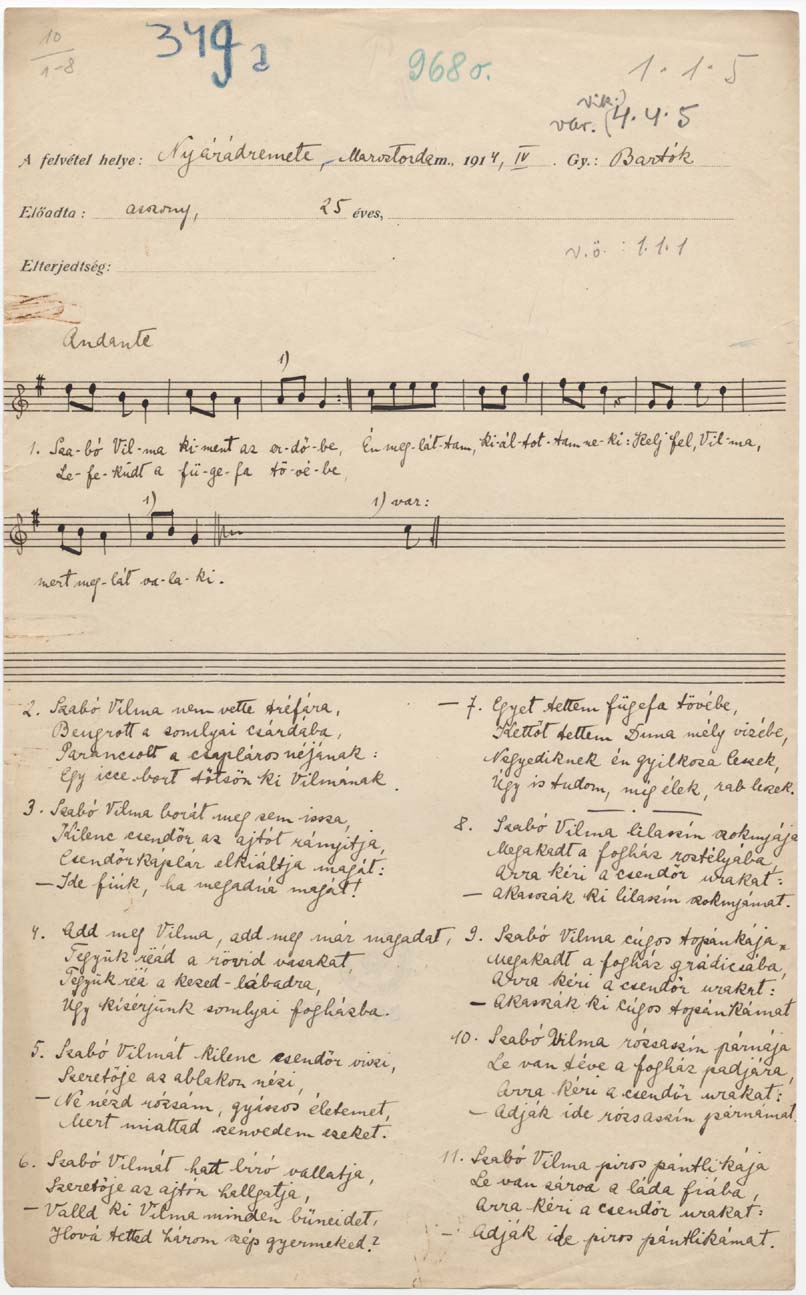 10
1-8
349a
968 o.
1.1.5
vik.)
var. (4.4.5
A felvétel helye: Nyárádremete, Marostorda m., 1914, IV. Gy.: Bartók
Előadta: asszony, 25 éves,
v.ö.: 1.1.1
Elterjedtség:
Andante
1)
1. Sza-bó Vil-ma ki-ment az er-dő-be, Én meg-lát-tam, ki-ál-tot-tam ne-ki: Kelj fel, Vil-ma,
Le-fe-küdt a fü-ge-fa tö-vé-be,
1) 1) var:
mert meg-lát va-la-ki.
2. Szabó Vilma nem vette tréfára,
Bengrott a somlyai csárdába,
Parancsolt a csaplárosnéjának:
Egy icce bort töltsön ki Vilmának.
3. Szabó Vilma borát meg sem issza,
Kilenc csendőr az ajtót rányitja,
Csendőrkáplár elkiáltja magát:
— Ide fiúk, ha megadná magát!
4. Add meg Vilma, add meg már magadat,
Tegyük reád a rövid vasakat,
Tegyük reá a kezed-lábadra,
Úgy kisérjünk somlyai fogházba.
5. Szabó Vilmát kilenc csendőr viszi,
Szeretője az ablakon nézi,
— Ne nézd rózsám, gyászos életemet,
Mert miattad szenvedem ezeket.
6. Szabó Vilmát hatt bíró vallatja,
Szeretője az ajtón hallgatja,
— Valld ki Vilma minden bűneidet,
Hová tetted három szép gyermeked?
— 7. Egyet tettem fügefa tövébe,
Kettőt tettem Duna mély vizébe,
Negyediknek én gyilkosa leszek,
Úgy is tudom, míg élek, rab leszek.
8. Szabó Vilma lilaszín szoknyája
Megakadt a fogház rostélyába,
Arra kéri a csendőr urakat:
— Akasszák ki lilaszín szoknyámat.
9. Szabó Vilma cúgos topánkája
Megakadt a fogház grádicsába,
Arra kéri a csendőr urakat:
— Akasszák ki cúgos topánkámat
10. Szabó Vilma rózsaszín párnája
Le van téve a fogház padjára,
Arra kéri a csendőr urakat:
— Adják ide rózsaszín párnámat.
11. Szabó Vilma piros pántlikája
Le van zárva a láda fiába,
Arra kéri a csendőr urakat:
— Adják ide piros pántlikámat.